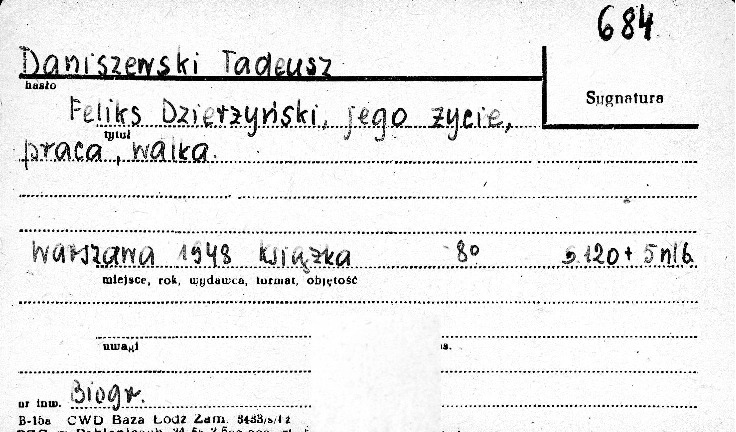 684
Daniszewski Tadeusz
hasło
Sygnatura
Feliks Dzierżyński, jego życie,
tytuł
praca, walka.
Warszawa 1948 Książka 8° s. 120 + 5 nlb.
miejsce, rok, wydawca, format, objętość
uwagi
nr inw. Biogr.
B-15a CWD Baza Łódź Zam.